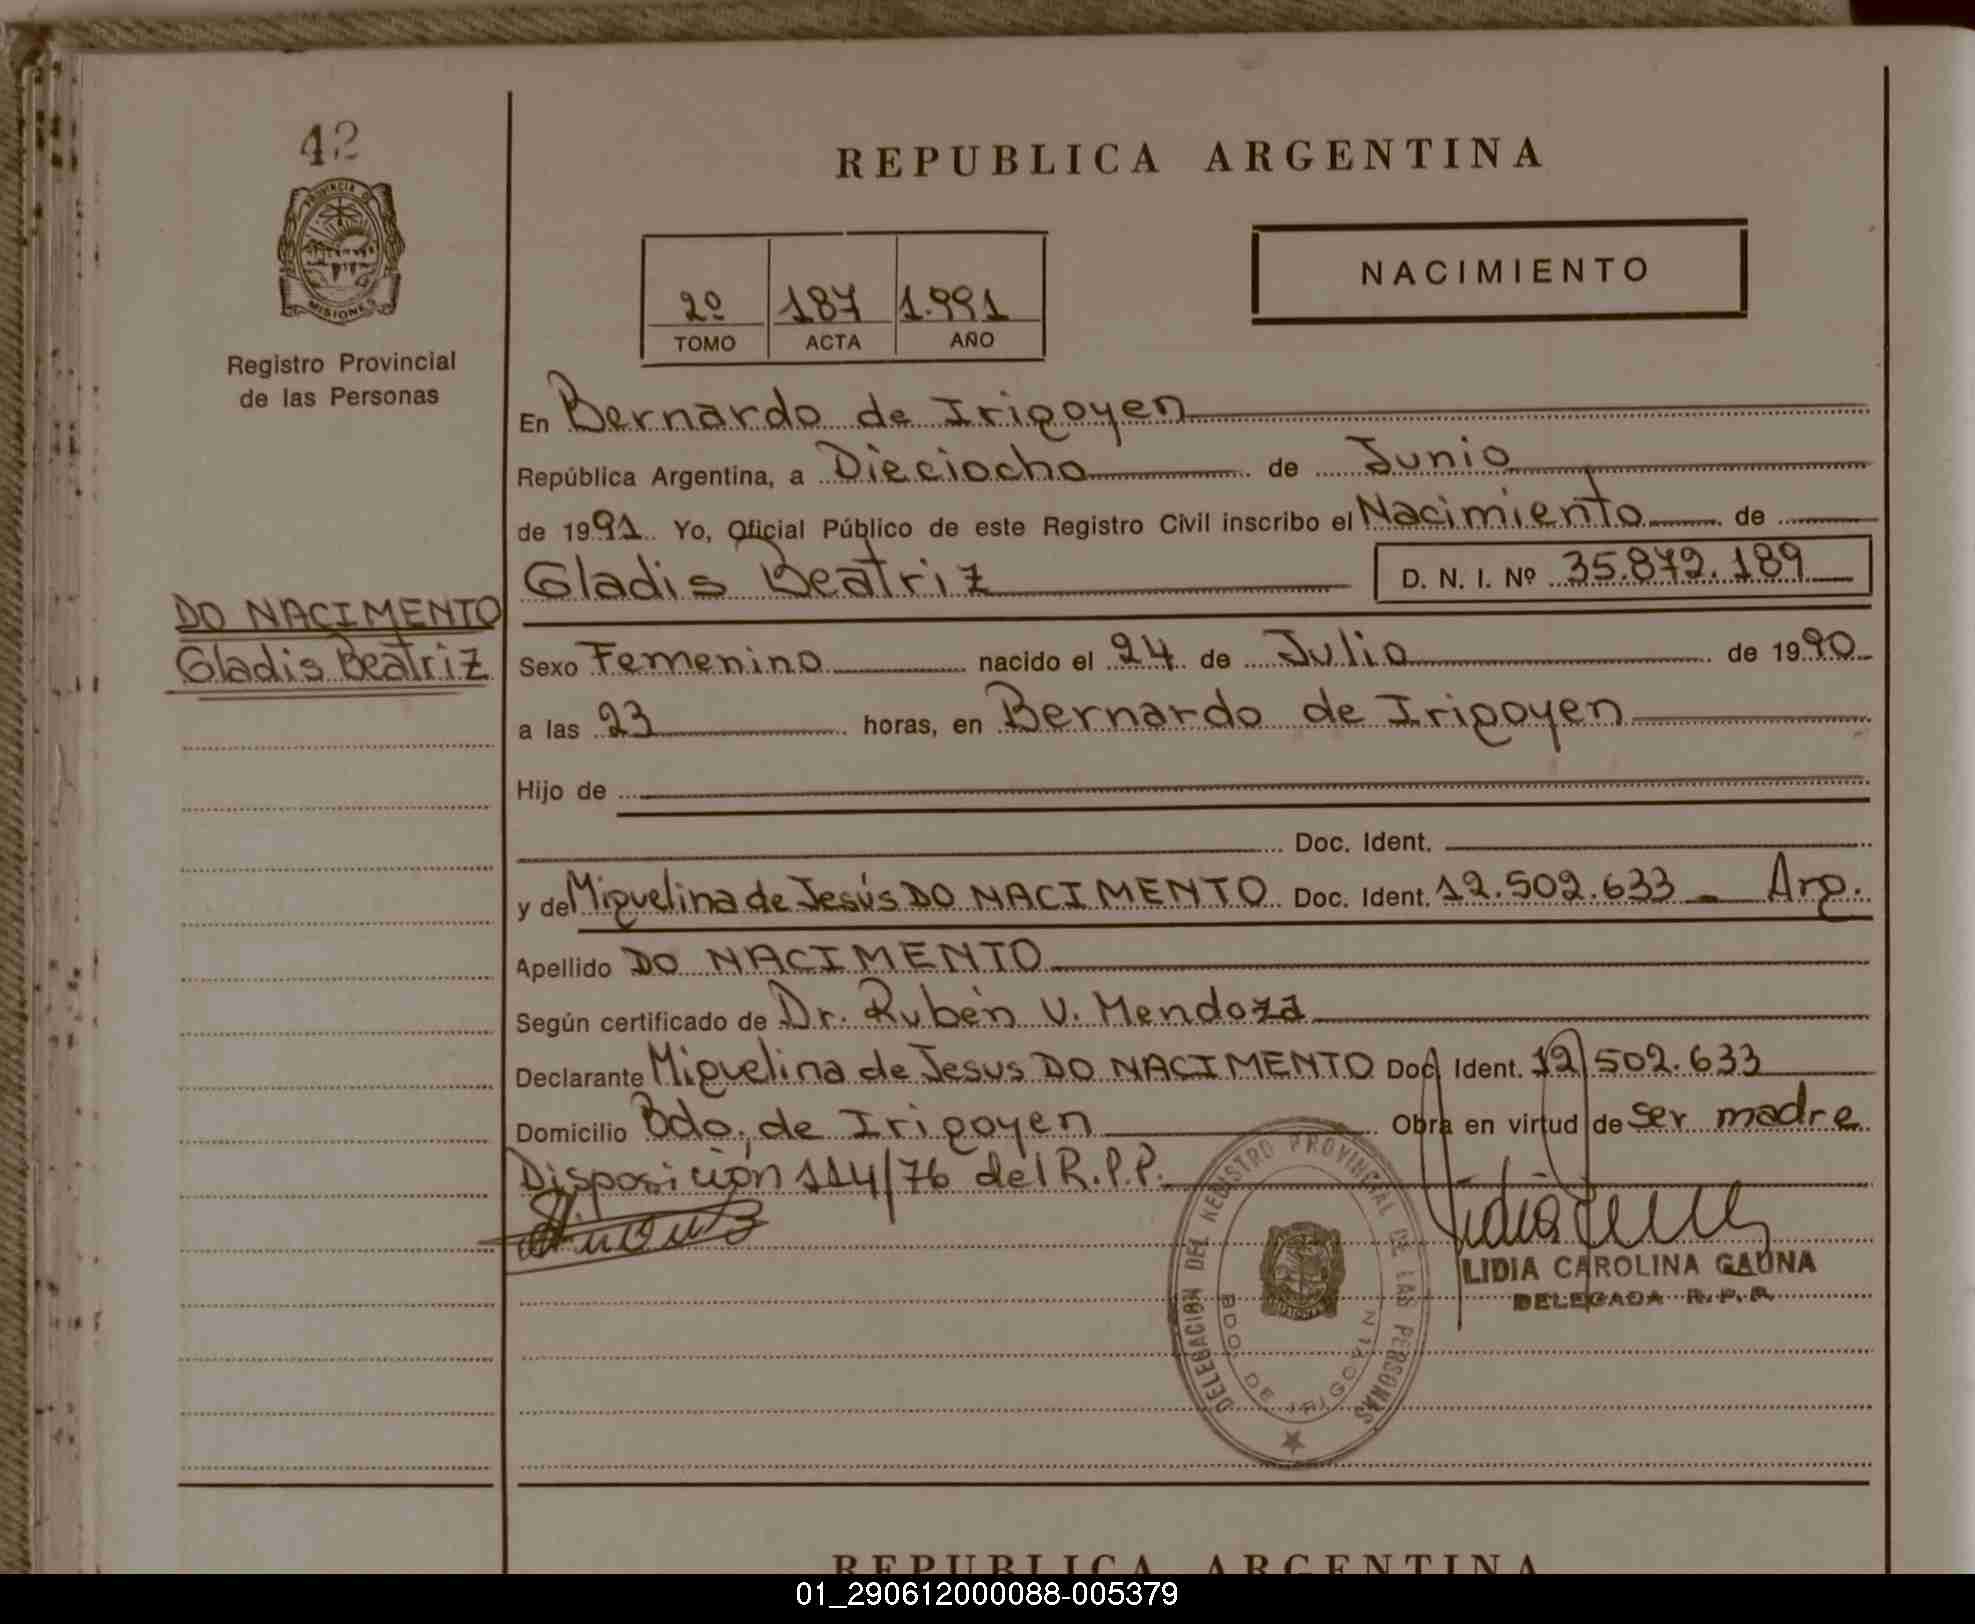 42
PROVINCIA DE
MISIONES
Registro Provincial
de las Personas
DO NACIMENTO
Gladis Beatriz
REPUBLICA ARGENTINA
NACIMIENTO
2º 187 1.991
TOMO ACTA AÑO
En Bernardo de Irigoyen
República Argentina, a Dieciocho de Junio
de 1991 Yo, Oficial Público de este Registro Civil inscribo el Nacimiento de
Gladis Beatriz D. N. I. Nº 35.872.189
Sexo Femenino nacido el 24 de Julio de 1990
a las 23 horas, en Bernardo de Irigoyen
Hijo de
Doc. Ident.
y de Miguelina de Jesús DO NACIMENTO Doc. Ident. 12.502.633 - Arg.
Apellido DO NACIMENTO
Según certificado de Dr. Rubén V. Mendoza
Declarante Miguelina de Jesus DO NACIMENTO Doc. Ident. 12.502.633
Domicilio Bdo. de Irigoyen Obra en virtud de ser madre
Disposición 114/76 del R.P.P.
DELEGACION DEL REGISTRO PROVINCIAL DE LAS PERSONAS
BDO. DE IRIGOYEN
LIDIA CAROLINA GAUNA
DELEGADA R. P. P.
REPUBLICA ARGENTINA
01_290612000088-005379